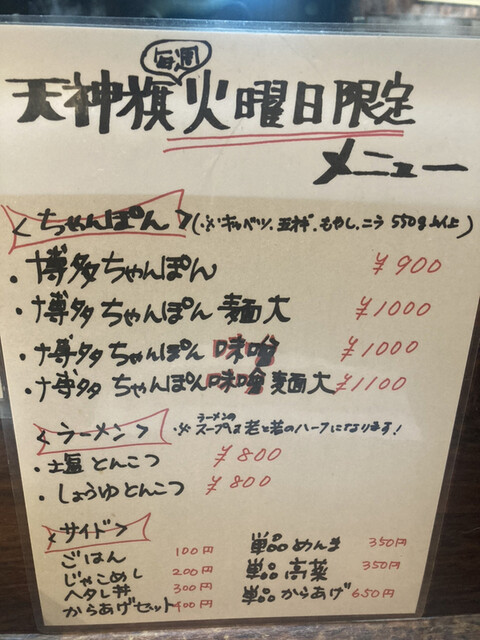 毎週
天神旗 火曜日限定
メニュー
<ちゃんぽん> (※キャベツ、玉ネギ、もやし、ニラ 550g以上)
・博多ちゃんぽん ¥900
・博多ちゃんぽん 麺大 ¥1000
・博多ちゃんぽん 味噌 ¥1000
・博多ちゃんぽん味噌 麺大 ¥1100
<ラーメン> ※ラーメンのスープは老と若のハーフになります!
・塩とんこつ ¥800
・しょうゆとんこつ ¥800
<サイド>
ごはん 100円
じゃこめし 200円
ヘタレ丼 300円
からあげセット 400円
単品めんま 350円
単品 高菜 350円
単品 からあげ 650円